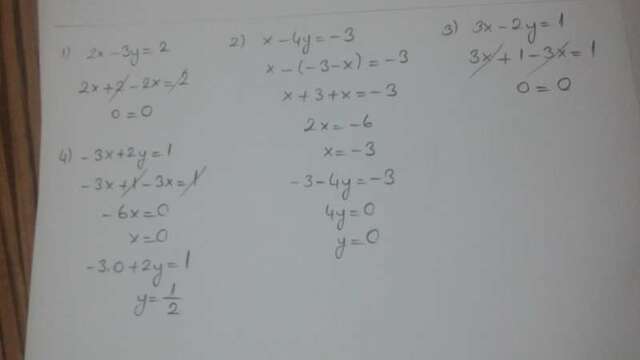 1) 2x - 3y = 2
2x + 2 - 2x = 2
0 = 0
2) x - 4y = -3
x - (-3 - x) = -3
x + 3 + x = -3
2x = -6
x = -3
-3 - 4y = -3
4y = 0
y = 0
3) 3x - 2y = 1
3x + 1 - 3x = 1
0 = 0
4) -3x + 2y = 1
-3x + 1 - 3x = 1
-6x = 0
x = 0
-3.0 + 2y = 1
y = 1/2